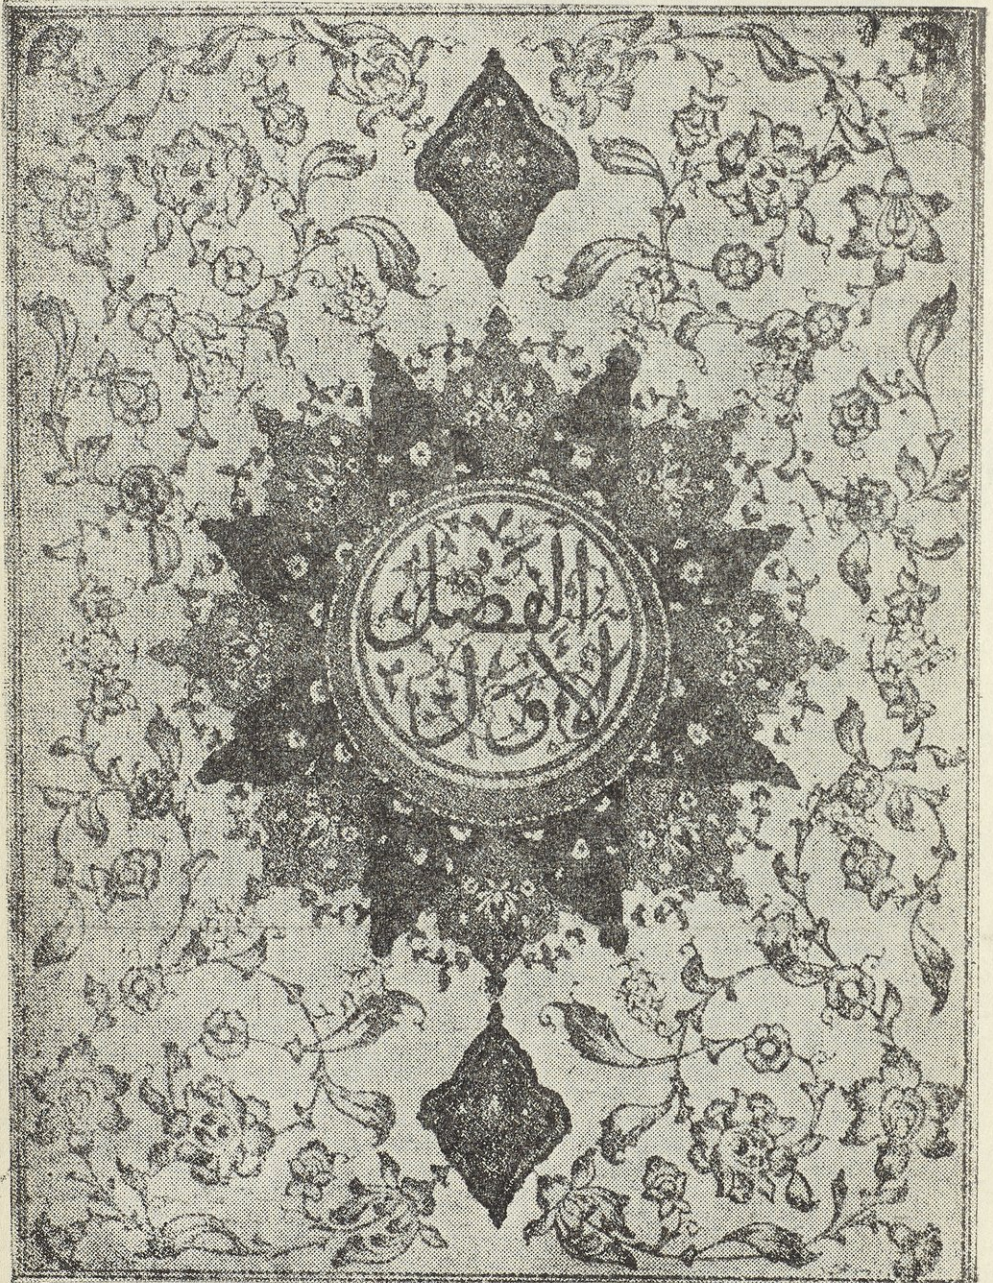 الفصل
الاول